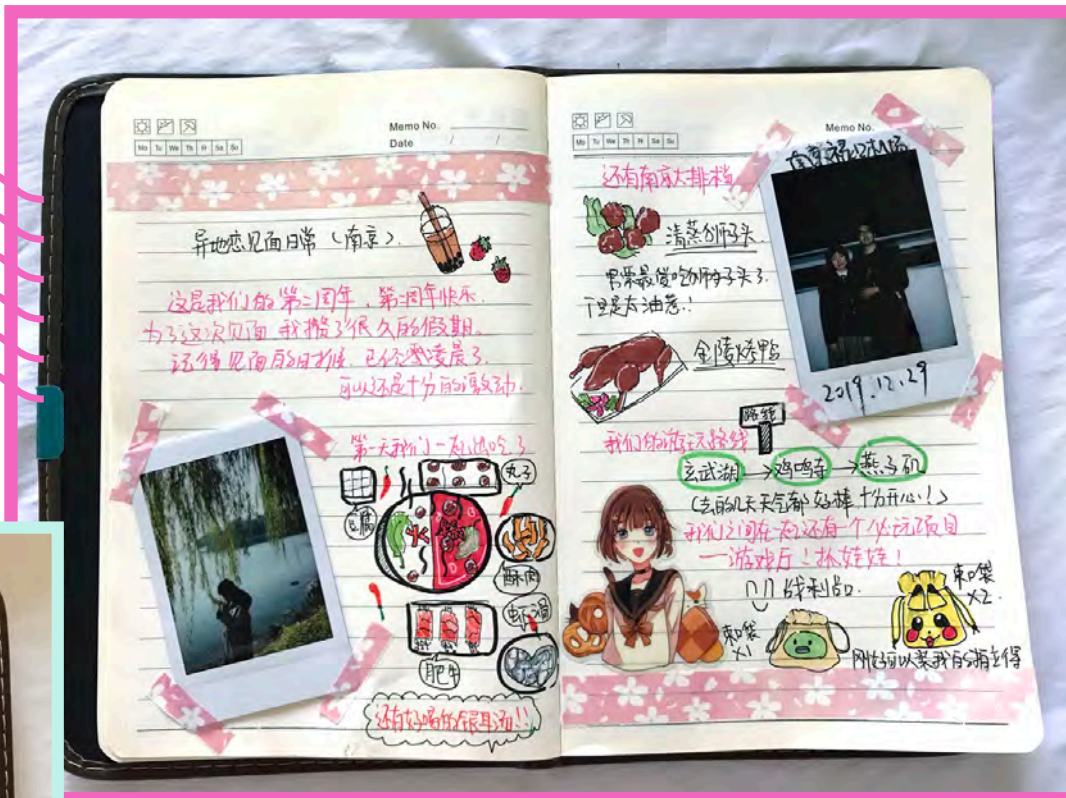 Memo No.
Date / /
Mo Tu We Th Fr Sa Su
异地恋见面日常（南京）.
这是我们的第二周年，第二周年快乐.
为了这次见面 我攒了很久的假期。
记得见面的时候，已经是凌晨了.
可以还是十分的激动.
第一天我们一起出吃了
丸子
豆腐
酥肉
虾滑
肥牛
还有好喝的银耳汤!!
Memo No.
Mo Tu We Th Fr Sa Su
还有南京大排档
南京禄口机场
清蒸狮子头.
男票最爱吃狮子头了.
但是太油惹!!
金陵烤鸭
2019.12.29
路线
我们的游玩路线
玄武湖→鸡鸣寺→燕子矶
(去的几天天气都好棒 十分开心!)
我们之间在一起还有一个必玩项目
—游戏厅！抓娃娃！
战利品.
束口袋
×1
束口袋
×2.
刚好可以装我的拍立得